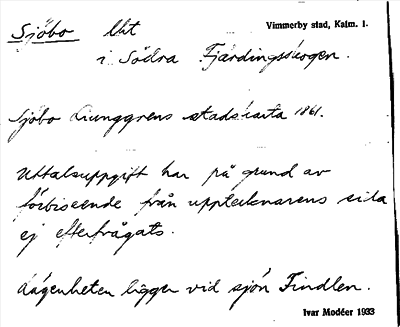 Sjöbo lht Vimmerby stad, Kalm. l.
i Södra Fjärdingsskogen.
Sjöbo Ljunggrens stadskarta 1861.
Uttalsuppgift har på grund av
förbiseende från upptecknarens sida
ej efterfrågats.
Lägenheten ligger vid sjön Findlen.
Ivar Modéer 1933